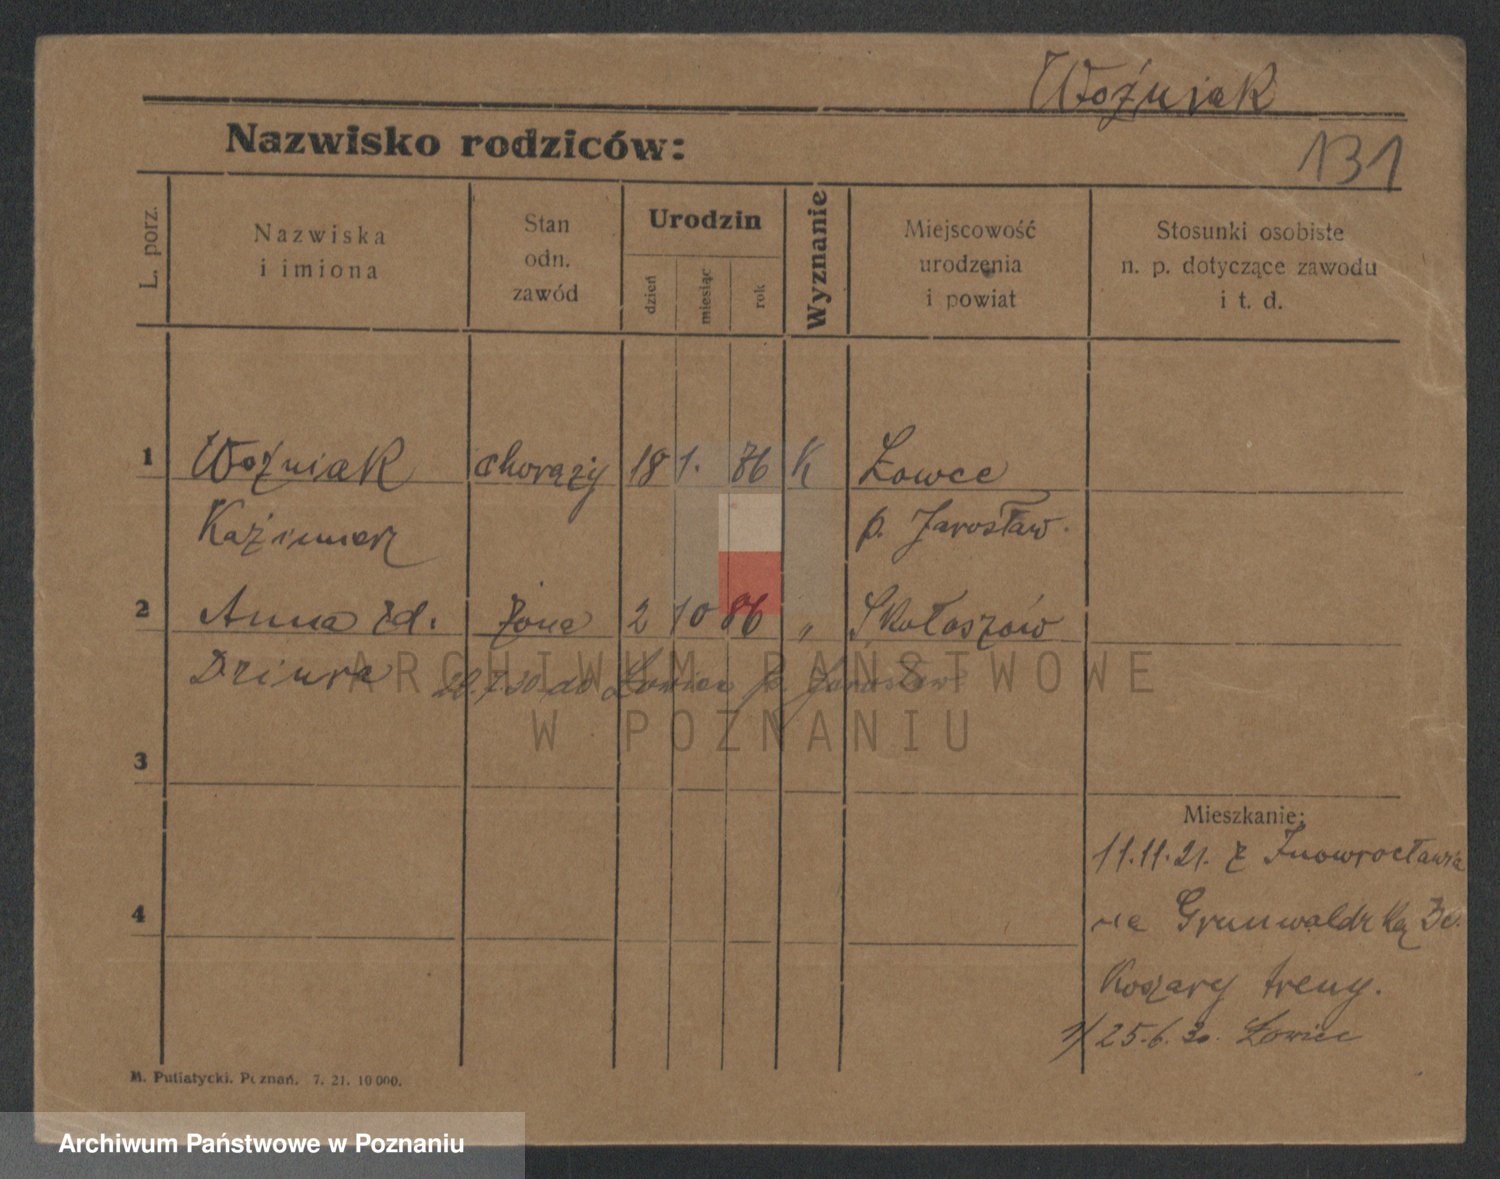 Woźniak
131
Nazwisko rodziców:
L. porz.
Nazwiska
i imiona
Stan
odn.
zawód
Urodzin
dzień
miesiąc
rok
Wyznanie
Miejscowość
urodzenia
i powiat
Stosunki osobiste
n. p. dotyczące zawodu
i t. d.
1 Woźniak chorąży 18 1. 86 K Łowce
Kaźimierz p. Jarosław.
2 Anna zd. żona 2 10 86 „ Skołoszów
Dziura 28.7.30 do Łowiec p. Jarosław
ARCHIWUM PAŃSTWOWE
W POZNANIU
3
Mieszkanie:
11.11.21. z Inowrocławia
4
na Grunwaldzką
Koszary treny.
1/ 25.6.30. Łowiec
M. Putiatycki. Poznań. 7. 21. 10 000.
Archiwum Państwowe w Poznaniu